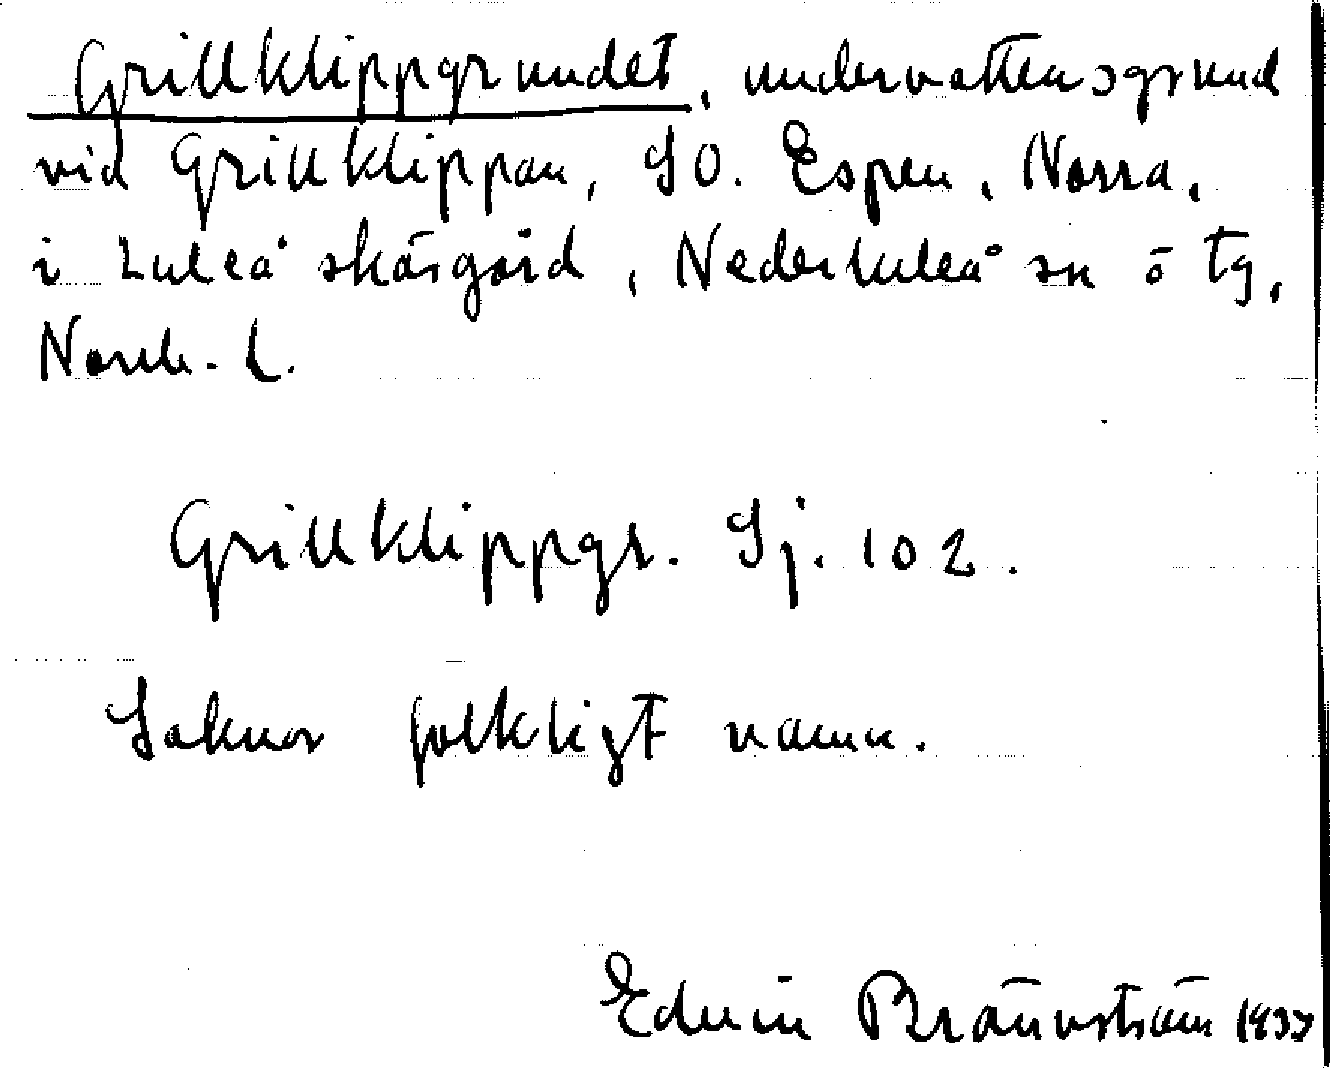 Grillklippgrundet, undervattensgrund
vid Grillklippan, SO. Espen, Norra,
i Luleå skärgård, Nederluleå sn o tg,
Norrb. L.
Grillklippgr. Sj. 102.
Saknar folkligt namn.
Edvin Brännström 1937